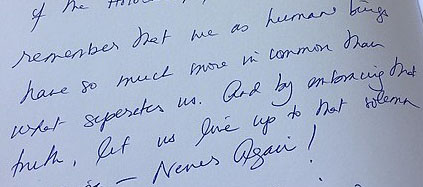 of the Holoc
remember that we as human beings
have so much more in common than
what seperates us. And by embracing that
truth, let us live up to that solemn
– Never Again!